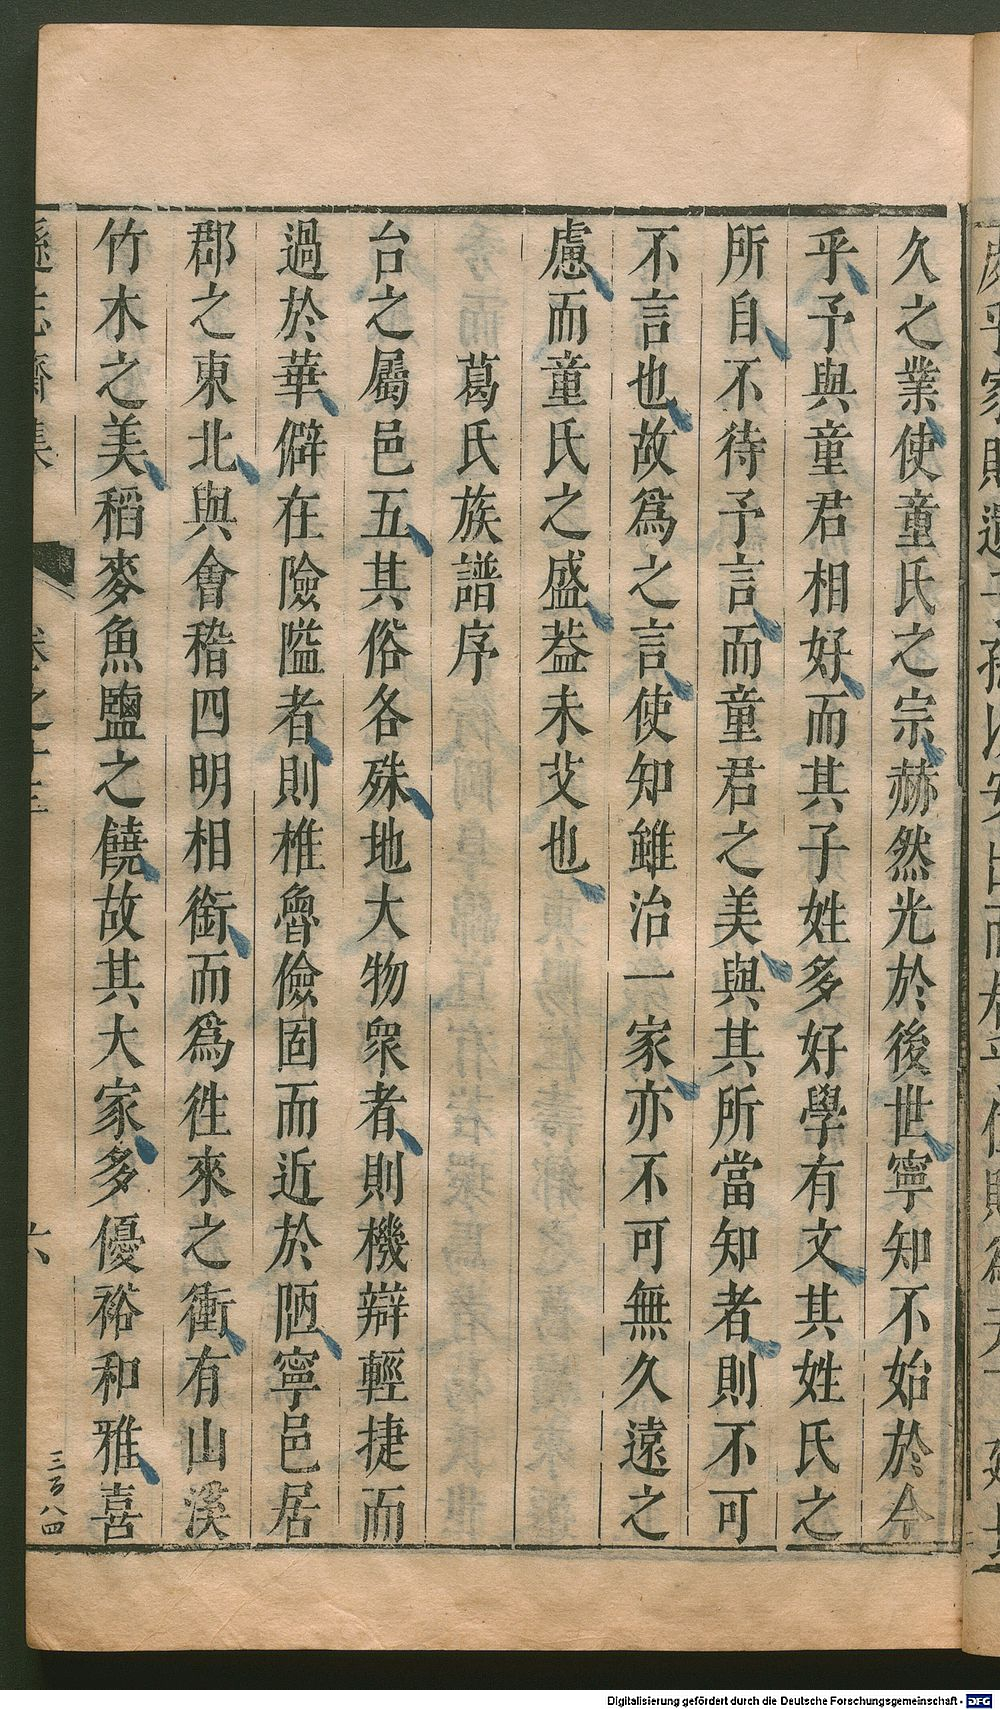 久之業使童氏之宗赫然光於後世寧知不始於今
乎予與童君相好而其子姓多好學有文其姓氏之
所自不待予言而童君之美與其所當知者則不可
不言也故爲之言使知雖治一家亦不可無久遠之
慮而童氏之盛葢未艾也
葛氏族譜序
台之屬邑五其俗各殊地大物衆者則機辯輕捷而
過於華僻在險隘者則椎魯儉固而近於陋寧邑居
郡之東北與會稽四明相銜而爲徃來之衝有山溪
竹木之美稻麥魚鹽之饒故其大家多優裕和雅喜
遜志齋集
卷之十三
六
三百八四
Digitalisierung gefördert durch die Deutsche Forschungsgemeinschaft - DFG